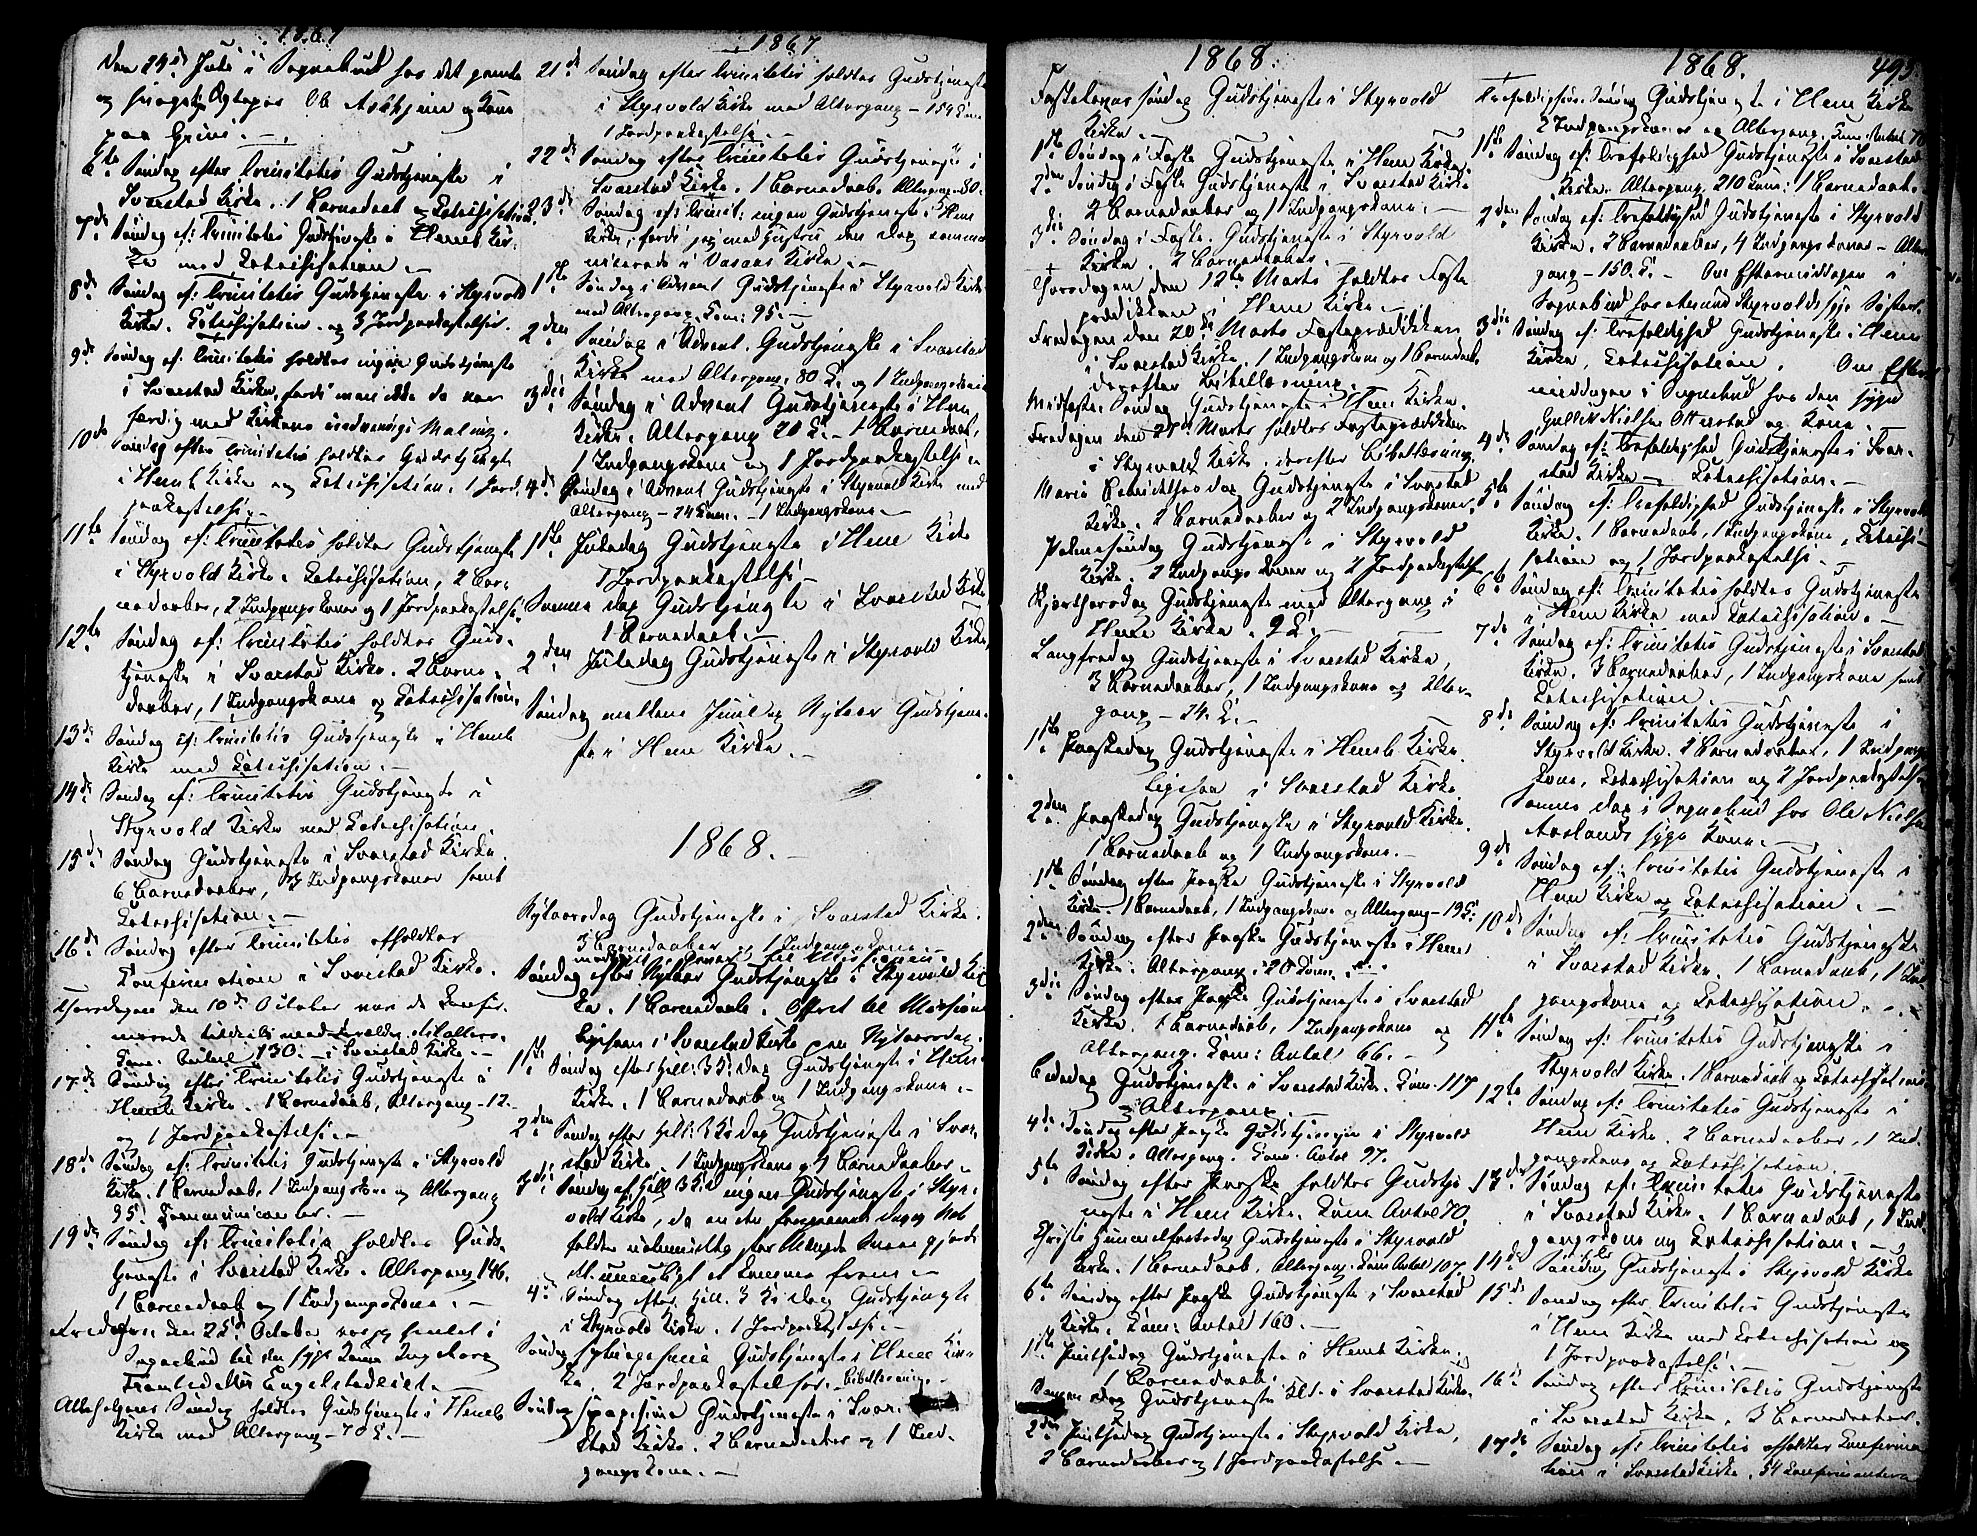 1867
Den 29de Juli i Sognebud hos det gamle
og svage Ægtepar Ole Askjem og Kone
paa Grini. —
6te Søndag efter Trinitatis Gudstjeneste i
Svarstad Kirke. 1 Barnedaab og Catechisation
7de Søndag ef: Trinitatis Gudstjeneste i Hems Kir-
ke med Catechisation. —
8de Søndag ef: Trinitatis Gudstjeneste i Styrvold
Kirke. Catechisation og 3 Jordpaakastelser.
9de Søndag ef: Trinitatis holdtes ingen Gudstjeneste
i Svarstad Kirke, fordi man ikke da var
færdig med Kirkens indvendige Maling.
10de Søndag efter Trinitatis holdtes Gudstjeneste
i Hems Kirke og Catechisation. 1 Jord-
paakastelse. —
11te Søndag ef: Trinitatis holdtes Gudstjeneste
i Styrvold Kirke. Catechisation, 2 Bar-
nedaaber, 2 Indgangskoner og 1 Jordpaakastelse
12te Søndag ef: Trinitatis holdtes Guds-
tjeneste i Svarstad Kirke. 2 Barne-
daaber, 1 Indgangskone og Catechisation.
13de Søndag ef: Trinitatis Gudstjeneste i Hems
Kirke med Catechisation. —
14de Søndag ef: Trinitatis Gudstjeneste i
Styrvold Kirke med Catechisation.
15de Søndag Gudstjeneste i Svarstad Kirke.
6 Barnedaaber, 3 Indgangskoner samt
Catechisation. —
16de Søndag efter Trinitatis afholdtes
Confirmation i Svarstad Kirke.
Thorsdagen den 10de October var de Confir-
merede tilderels med Forældre til Alters.
Com: Antal 130. — i Svarstad Kirke. —
17de Søndag efter Trinitatis Gudstjeneste i
Hems Kirke. 1 Barnedaab, Altergang — 12.
og 1 Jordpaakastelse. —
18de Søndag ef: Trinitatis Gudstjeneste i Styrvold
Kirke. 1 Barnedaab, 1 Indgangskone og Altergang
95 Communicanter. —
19de Søndag ef: Trinitatis holdtes Guds-
tjeneste i Svarstad Kirke. Altergang 146.
1 Barnedaab og 1 Indgangskone. —
Fredagen den 25de October var jeg hentet i
Sognebud til den syge Kone Ingeborg
Engelstadeiet. —
Allehelgens Søndag holdtes Gudstjeneste i Hems
Kirke med Altergang — 70 C. —
1867
21de Søndag efter Trinitatis holdtes Gudstjeneste
i Styrvold Kirke med Altergang — 154 Com:
1 Jordpaakastelse. —
22de Søndag efter Trinitatis Gudstjeneste i
Svarstad Kirke. 1 Barnedaab. Altergang — 80.
23de Søndag ef: Trinit: ingen Gudstjeneste i Hem
Kirke, fordi jeg med Hustru den Dag commu-
nicerede i Vasaas Kirke. —
1ste Søndag i Advent Gudstjeneste i Styrvold Kirke
med Altergang. Com: 95. —
2den Søndag i Advent. Gudstjeneste i Svarstad
Kirke med Altergang. 80 C. og 1 Indgangskone
3die Søndag i Advent Gudstjeneste i Hem
Kirke. Altergang 20 C. — 1 Barnedaab,
1 Indgangskone og 1 Jordpaakastelse. —
4de Søndag i Advent Gudstjeneste i Styrvold Kirke med
Altergang — 24 Com. — 1 Indgangskone. —
1ste Juledag Gudstjeneste i Hem Kirke
1 Jordpaakastelse. —
Samme Dag Gudstjeneste i Svarstad Kirke
1 Barnedaab. —
2den Juledag Gudstjeneste i Styrvold Kirke,
Søndag mellem Juul og Nytaar Gudstjene-
ste i Hem Kirke. —
1868. —
Nytaarsdag Gudstjeneste i Svarstad Kirke.
3 Barnedaaber og 1 Indgangskone. —
med Offer til Missionen. —
Søndag efter Nytaar Gudstjeneste i Styrvold Kir-
ke. 1 Barnedaab. Offret til Mission
Ligesom i Svarstad Kirke paa Nytaarsdag.
1ste Søndag efter Hell: 3 K: dag Gudstjeneste i Hem
Kirke. 1 Barnedaab og 1 Indgangskone. —
2den Søndag efter Hell: 3 K: dag Gudstjeneste i Svar-
stad Kirke. 1 Indgangskone og 4 Barnedaaber —
3die Søndag ef: Hell. 3 K: d ingen Gudstjeneste i Styr-
vold Kirke, da en den foregaaende Dag og Nat
falden ualmindelig stor Mængde Snee gjorde
det umueligt at komme frem. —
4de Søndag efter Hell. 3 K: dag Gudstjeneste
i Styrvold Kirke. 1 Jordpaakastelse. —
Søndag Septuagesima Gudstjeneste i Hem Kir-
ke. 2 Jordpaakastelser. — Bibellæsning. —
Søndag Sexagesima Gudstjeneste i Svar-
stad Kirke. 2 Barnedaaber og 1 Ind-
gangskone. —
1868.
Fastelavns Søndag Gudstjeneste i Styrvold
Kirke. —
1ste Søndag i Faste Gudstjeneste i Hem Kirke
2den Søndag i Faste Gudstjeneste i Svarstad Kirke
2 Barnedaaber og 1 Indgangskone. —
3die Søndag i Faste. Gudstjeneste i Styrvold
Kirke. 2 Barnedaaber.
Thorsdagen den 12te Marts holdtes Faste
prædikken i Hem Kirke. —
Fredagen den 20de Marts Fasteprædikken
i Svarstad Kirke. 1 Indgangskone og 1 Barnedaab,
derefter Bibellæsning. —
Midfaste Søndag Gudstjeneste i Hem Kirke.
Fredagen den Marts holdtes Fasteprædikken
i Styrvold Kirke, derefter Bibellæsning
Mariæ Bebudelses Dag Gudstjeneste i Svarstad
Kirke. 2 Barnedaaber og 2 Indgangskoner.
Palmesøndag Gudstjeneste i Styrvold
Kirke. 2 Indgangskoner og 2 Jordpaakastelser
Skjærthorsdag Gudstjeneste med Altergang i
Hems Kirke. 9 C. —
Langfredag Gudstjeneste i Svarstad Kirke,
3 Barnedaaber, 1 Indgangskone og Alter-
gang — 24. C. —
1ste Paaskedag Gudstjeneste i Hems Kirke.
Ligesaa i Svarstad Kirke.
2den Paaskedag Gudstjeneste i Styrvold Kirke.
1 Barnedaab og 1 Indgangskone. —
1ste Søndag efter Paaske Gudstjeneste i Styrvold
Kirke. 1 Barnedaab, 1 Indgangskone og Altergang — 19 C:
2den Søndag efter Paaske Gudstjeneste i Hem
Kirke: Altergang: 20 Com. —
3die Søndag efter Paaske Gudstjeneste i Svarstad
Kirke. 1 Barnedaab, 1 Indgangskone og
Altergang. Com: Antal 66. —
Bededag Gudstjeneste i Svarstad Kirke. Com. 117
Altergang. —
4de Søndag efter Paaske Gudstjeneste i Styrvold
Kirke. Altergang. Com: Antal 97. —
5te Søndag efter Paaske holdtes Gudstje-
neste i Hem Kirke. Com: Antal 70
Christi Himmelfartsdag Gudstjeneste i Styrvold
Kirke. 1 Barnedaab. Altergang. Com: Antal 107.
6te Søndag efter Paaske Gudstjeneste i Svarstad
Kirke. Com: Antal 160. —
1ste Pintsedag Gudstjeneste i Hems Kirke.
1 Barnedaab.
Samme Dag Gudstjeneste i Svarstad Kirke.
2den Pintsedag Gudstjeneste i Styrvold Kirke,
2 Barnedaaber og 1 Jordpaakastelse. —
1868.
495
Trefoldigheds Søndag Gudstjeneste i Hem Kirke
2 Indgangskoner og Altergang. Com: Antal 70
1ste Søndag ef: Trefoldighed Gudstjeneste i Svarstad
Kirke. Altergang. 210 Com: 1 Barnedaab.
2den Søndag ef: Trefoldighed Gudstjeneste i Styrvold
Kirke. 2 Barnedaaber, 4 Indgangskoner — Alter
gang — 150. C. — Om Eftermiddagen i
Sognebud hos Amund Styrvolds syge Søster.
3die Søndag ef: Trefoldighed Gudstjeneste i Hem
Kirke, Catechisation. Om Efter-
middagen i Sognebud hos den syge
Gullik Nielsen Otterstad og Kone.
4de Søndag ef: Trefoldighed Gudstjeneste i Svar-
stad Kirke — Catechisation. —
5te Søndag ef: Trefoldighed Gudstjeneste i Styrvold
Kirke. 1 Barnedaab, 1 Indgangskone, Catechi-
sation og 1 Jordpaakastelse. —
6te Søndag ef: Trinitatis holdtes Gudstjeneste
i Hem Kirke med Catechisation. —
7de Søndag ef: Trinitatis Gudstjeneste i Svarstad
Kirke. 3 Barnedaaber, 1 Indgangskone samt
Catechisation. —
8de Søndag ef: Trinitatis Gudstjeneste i
Styrvold Kirke. 2 Barnedaaber, 1 Indgangs-
kone, Catechisation og 2 Jordpaakastelser
Samme Dag i Sognebud hos Ole Nielsen
Aaslands syge Kone. —
9de Søndag ef: Trinitatis Gudstjeneste i
Hem Kirke og Catechisation. —
10de Søndag ef: Trinitatis Gudstjeneste
i Svarstad Kirke. 1 Barnedaab, 1 Ind-
gangskone og Catechisation. —
11te Søndag ef: Trinitatis Gudstjeneste i
Styrvold Kirke. 1 Barnedaab og Catechisation
12te Søndag ef: Trinitatis Gudstjeneste i
Hem Kirke. 2 Barnedaaber, 1 Ind-
gangskone og Catechisation. —
13de Søndag ef: Trinitatis Gudstjeneste
i Svarstad Kirke. 1 Barnedaab, 1 Ind-
gangskone og Catechisation. —
14de Søndag Gudstjeneste i Styrvold Kirke
15de Søndag efter Trinitatis Gudstjeneste
i Hem Kirke med Catechisation og
1 Jordpaakastelse. —
16de Søndag efter Trinitatis Gudstjeneste
i Svarstad Kirke. 3 Barnedaaber.
17de Søndag ef: Trinitatis afholdtes Confirma-
tion i Svarstad Kirke. 54 Confirmanter